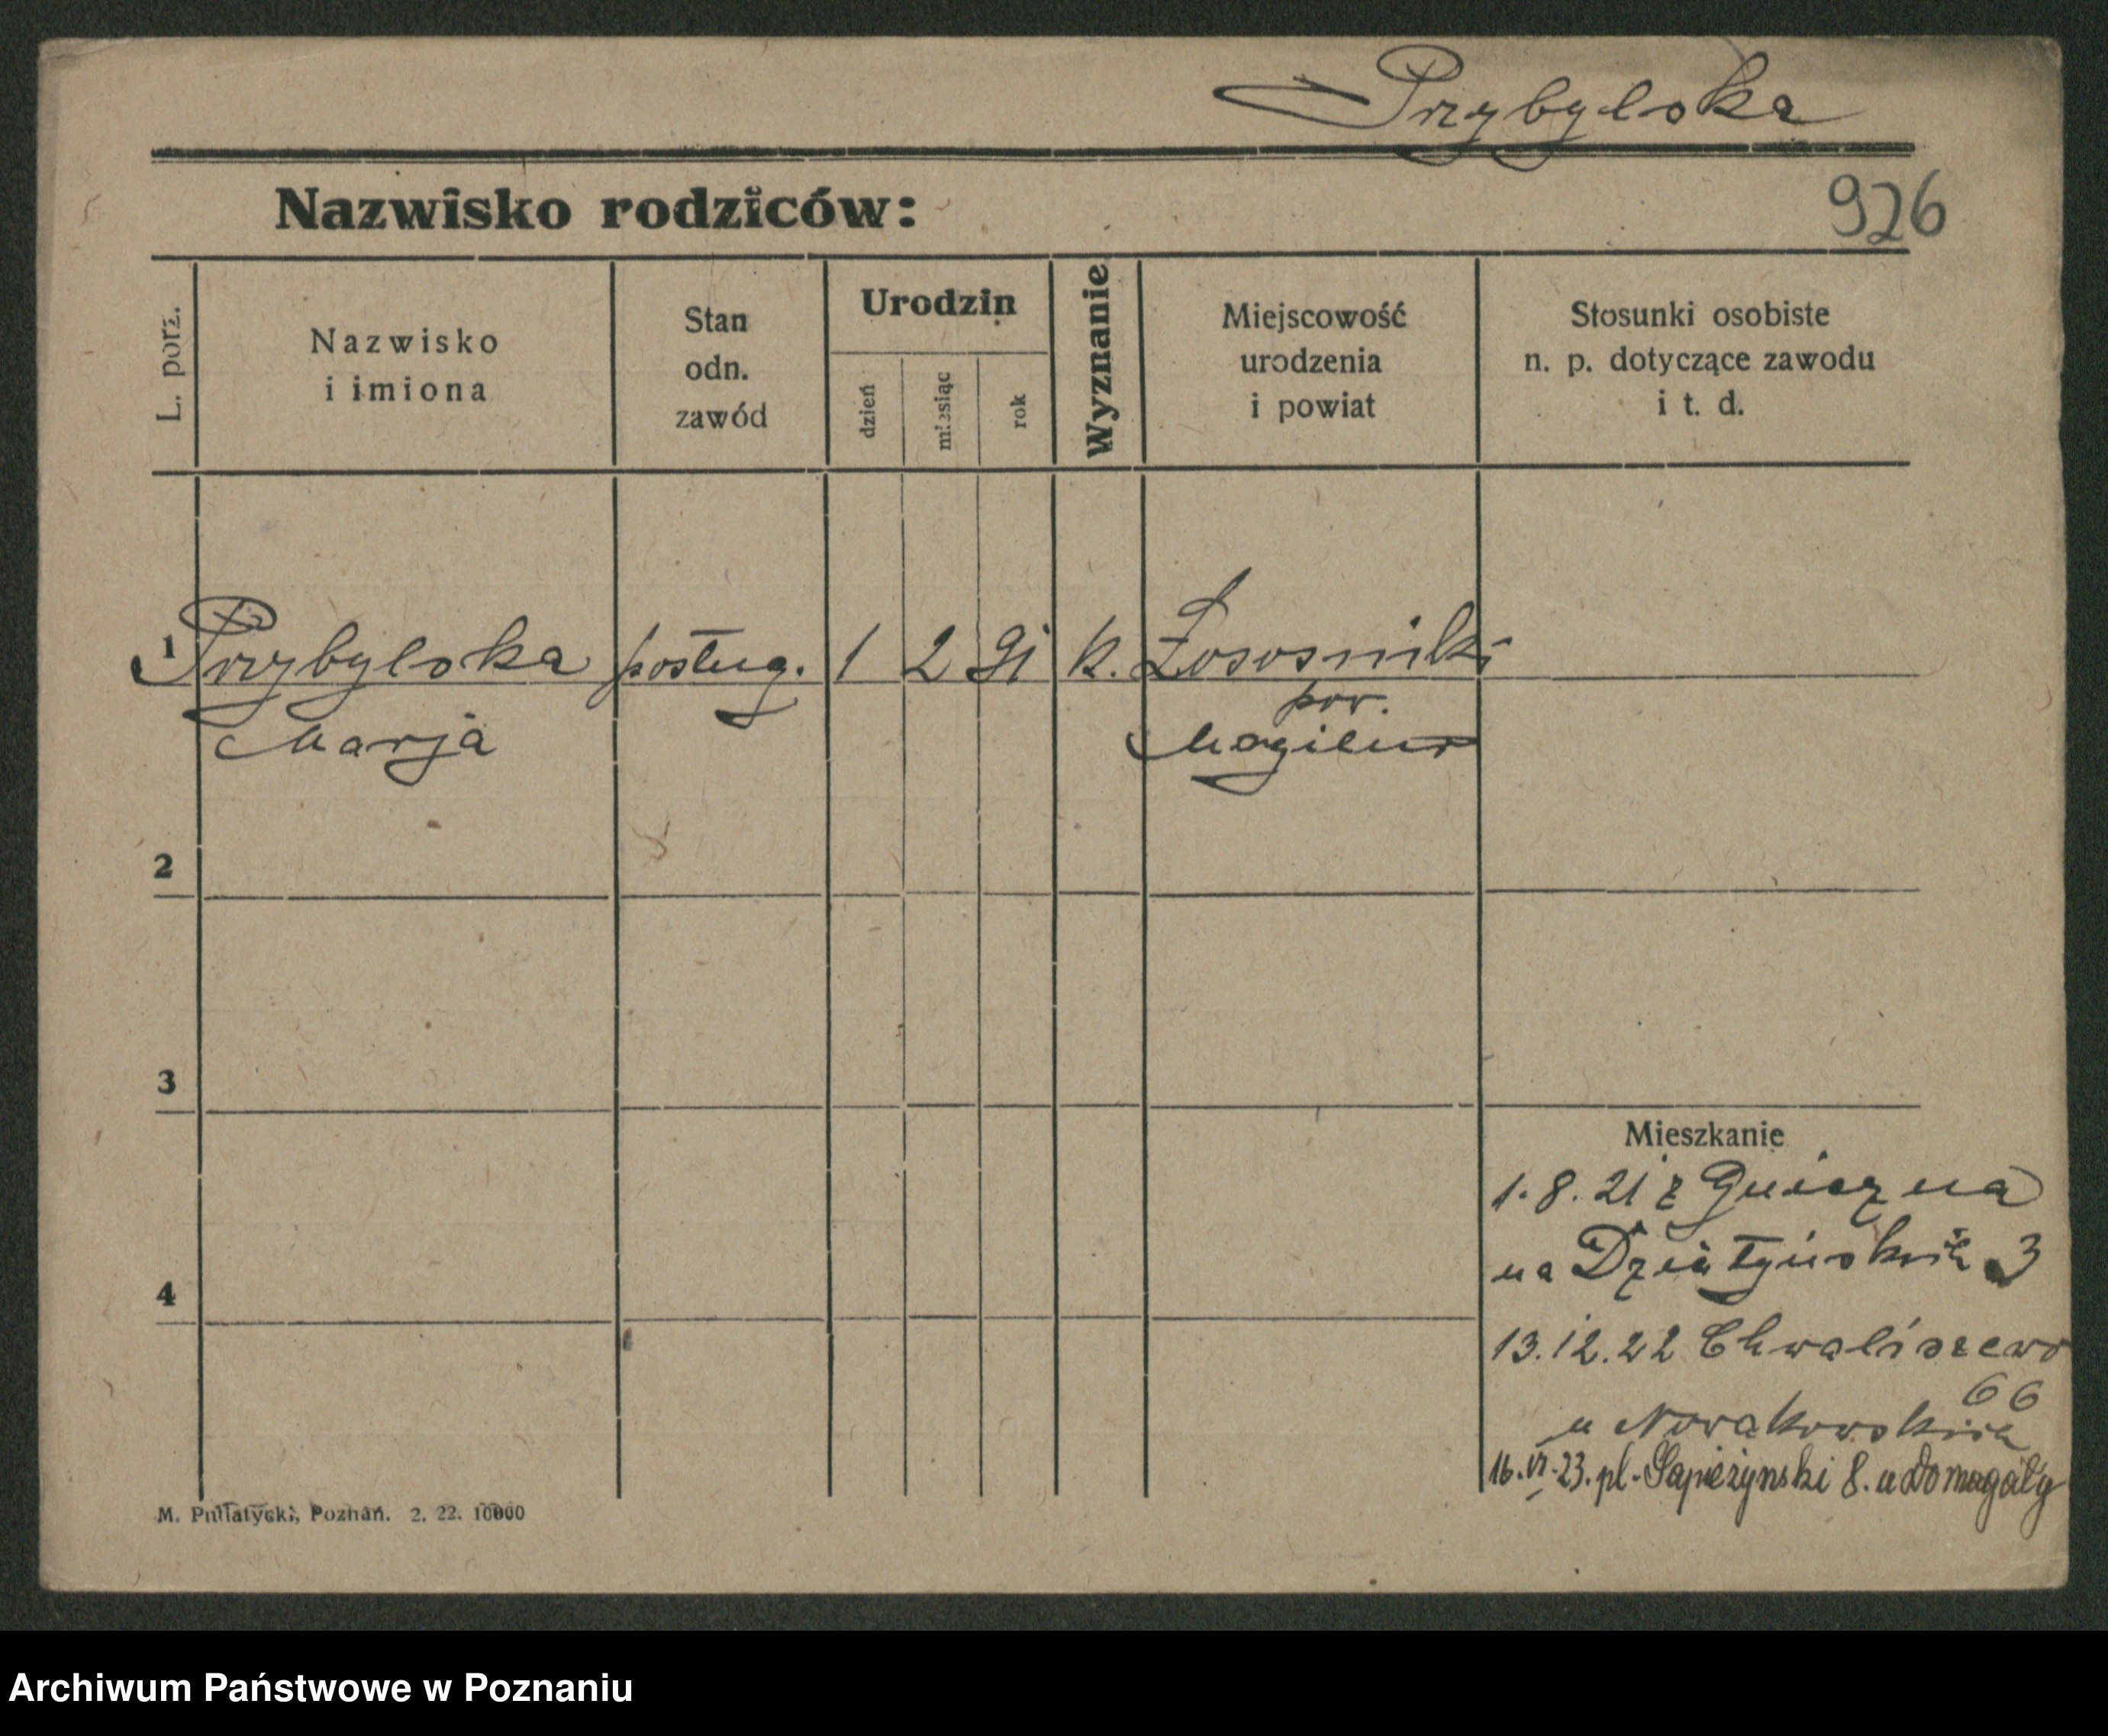 Przybylska
Nazwisko rodziców:
926
L. porz.
Nazwisko
i imiona
Stan
odn.
zawód
Urodzin
dzień
miesiąc
rok
Wyznanie
Miejscowość
urodzenia
i powiat
Stosunki osobiste
n. p. dotyczące zawodu
i t. d.
1 Przybylska posług. 1 2 91 k. Łosośniki
Marja
pow.
Mogilno
2
3
4
Mieszkanie
1.8.21 z Gniezna
na Działyńskich 3
13.12.22 Chwaliszewo
66
u Nowakowskich
16.VI.23. pl. Sapieżynski 8. u Domagały
M. Putiatycki, Poznań. 2. 22. 10000
Archiwum Państwowe w Poznaniu